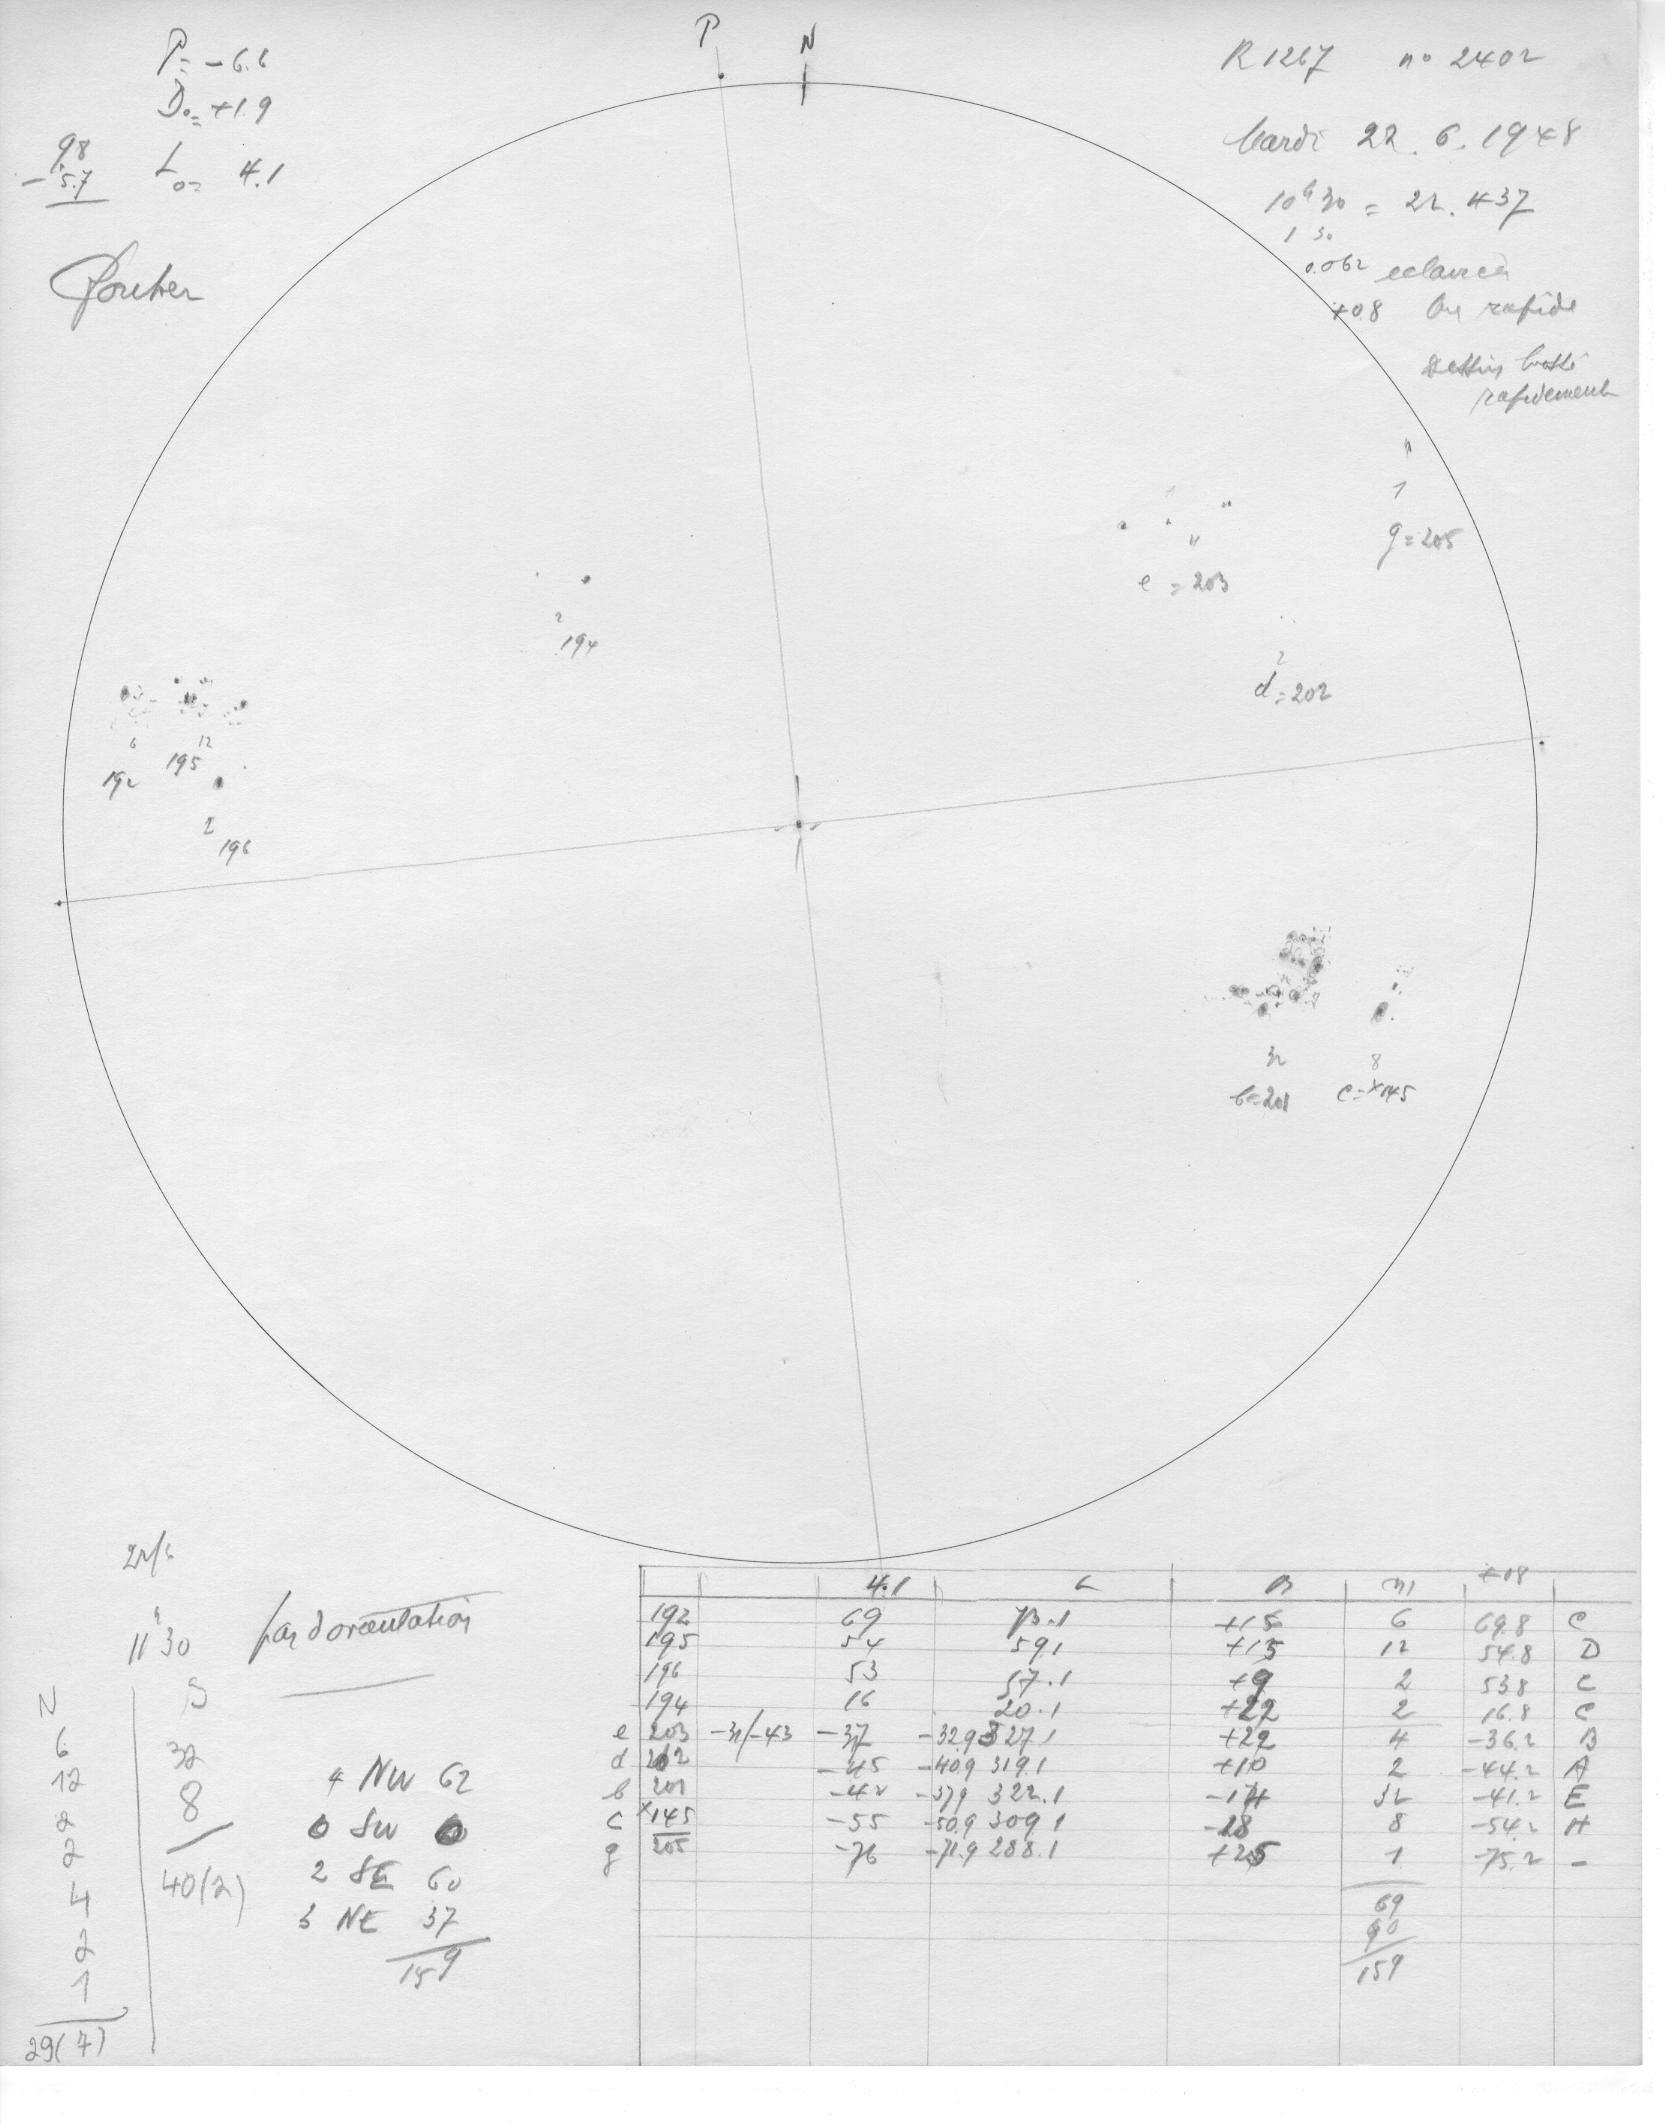 P N
P = -6.6
D₀ = +1.9
9.8
-5.7
L₀ = 4.1
R 1267 n° 2402
Mardi 22.6.1948
10h30 = 22.437
1 30
0.062 eclaircie
+0.8 rapide
Dessin
rapidement
1
g = 205
e = 203
2
194
2
d = 202
6 12
192 195
2
196
32 8
b = 201 c = ×145
22/6
11h30 pas d'orientation
N S
6 32
12 8
2 40(2)
2
4
2
1
29(7)
4 NW 62
0 SW 0
2 SE 60
3 NE 37
159
4.1 L B m +0.8
192 69 73.1 +15 6 69.8 C
195 54 59.1 +15 12 54.8 D
196 53 57.1 +9 2 53.8 C
194 16 20.1 +22 2 16.8 C
e 203 -32/-43 -37 -32.9 327.1 +22 4 -36.2 B
d 202 -45 -40.9 319.1 +10 2 -44.2 A
b 201 -42 -37.9 322.1 -14 32 -41.2 E
c ×145 -55 -50.9 309.1 -18 8 -54.2 H
g 205 -76 -71.9 288.1 +25 1 -75.2 -
69
90
159